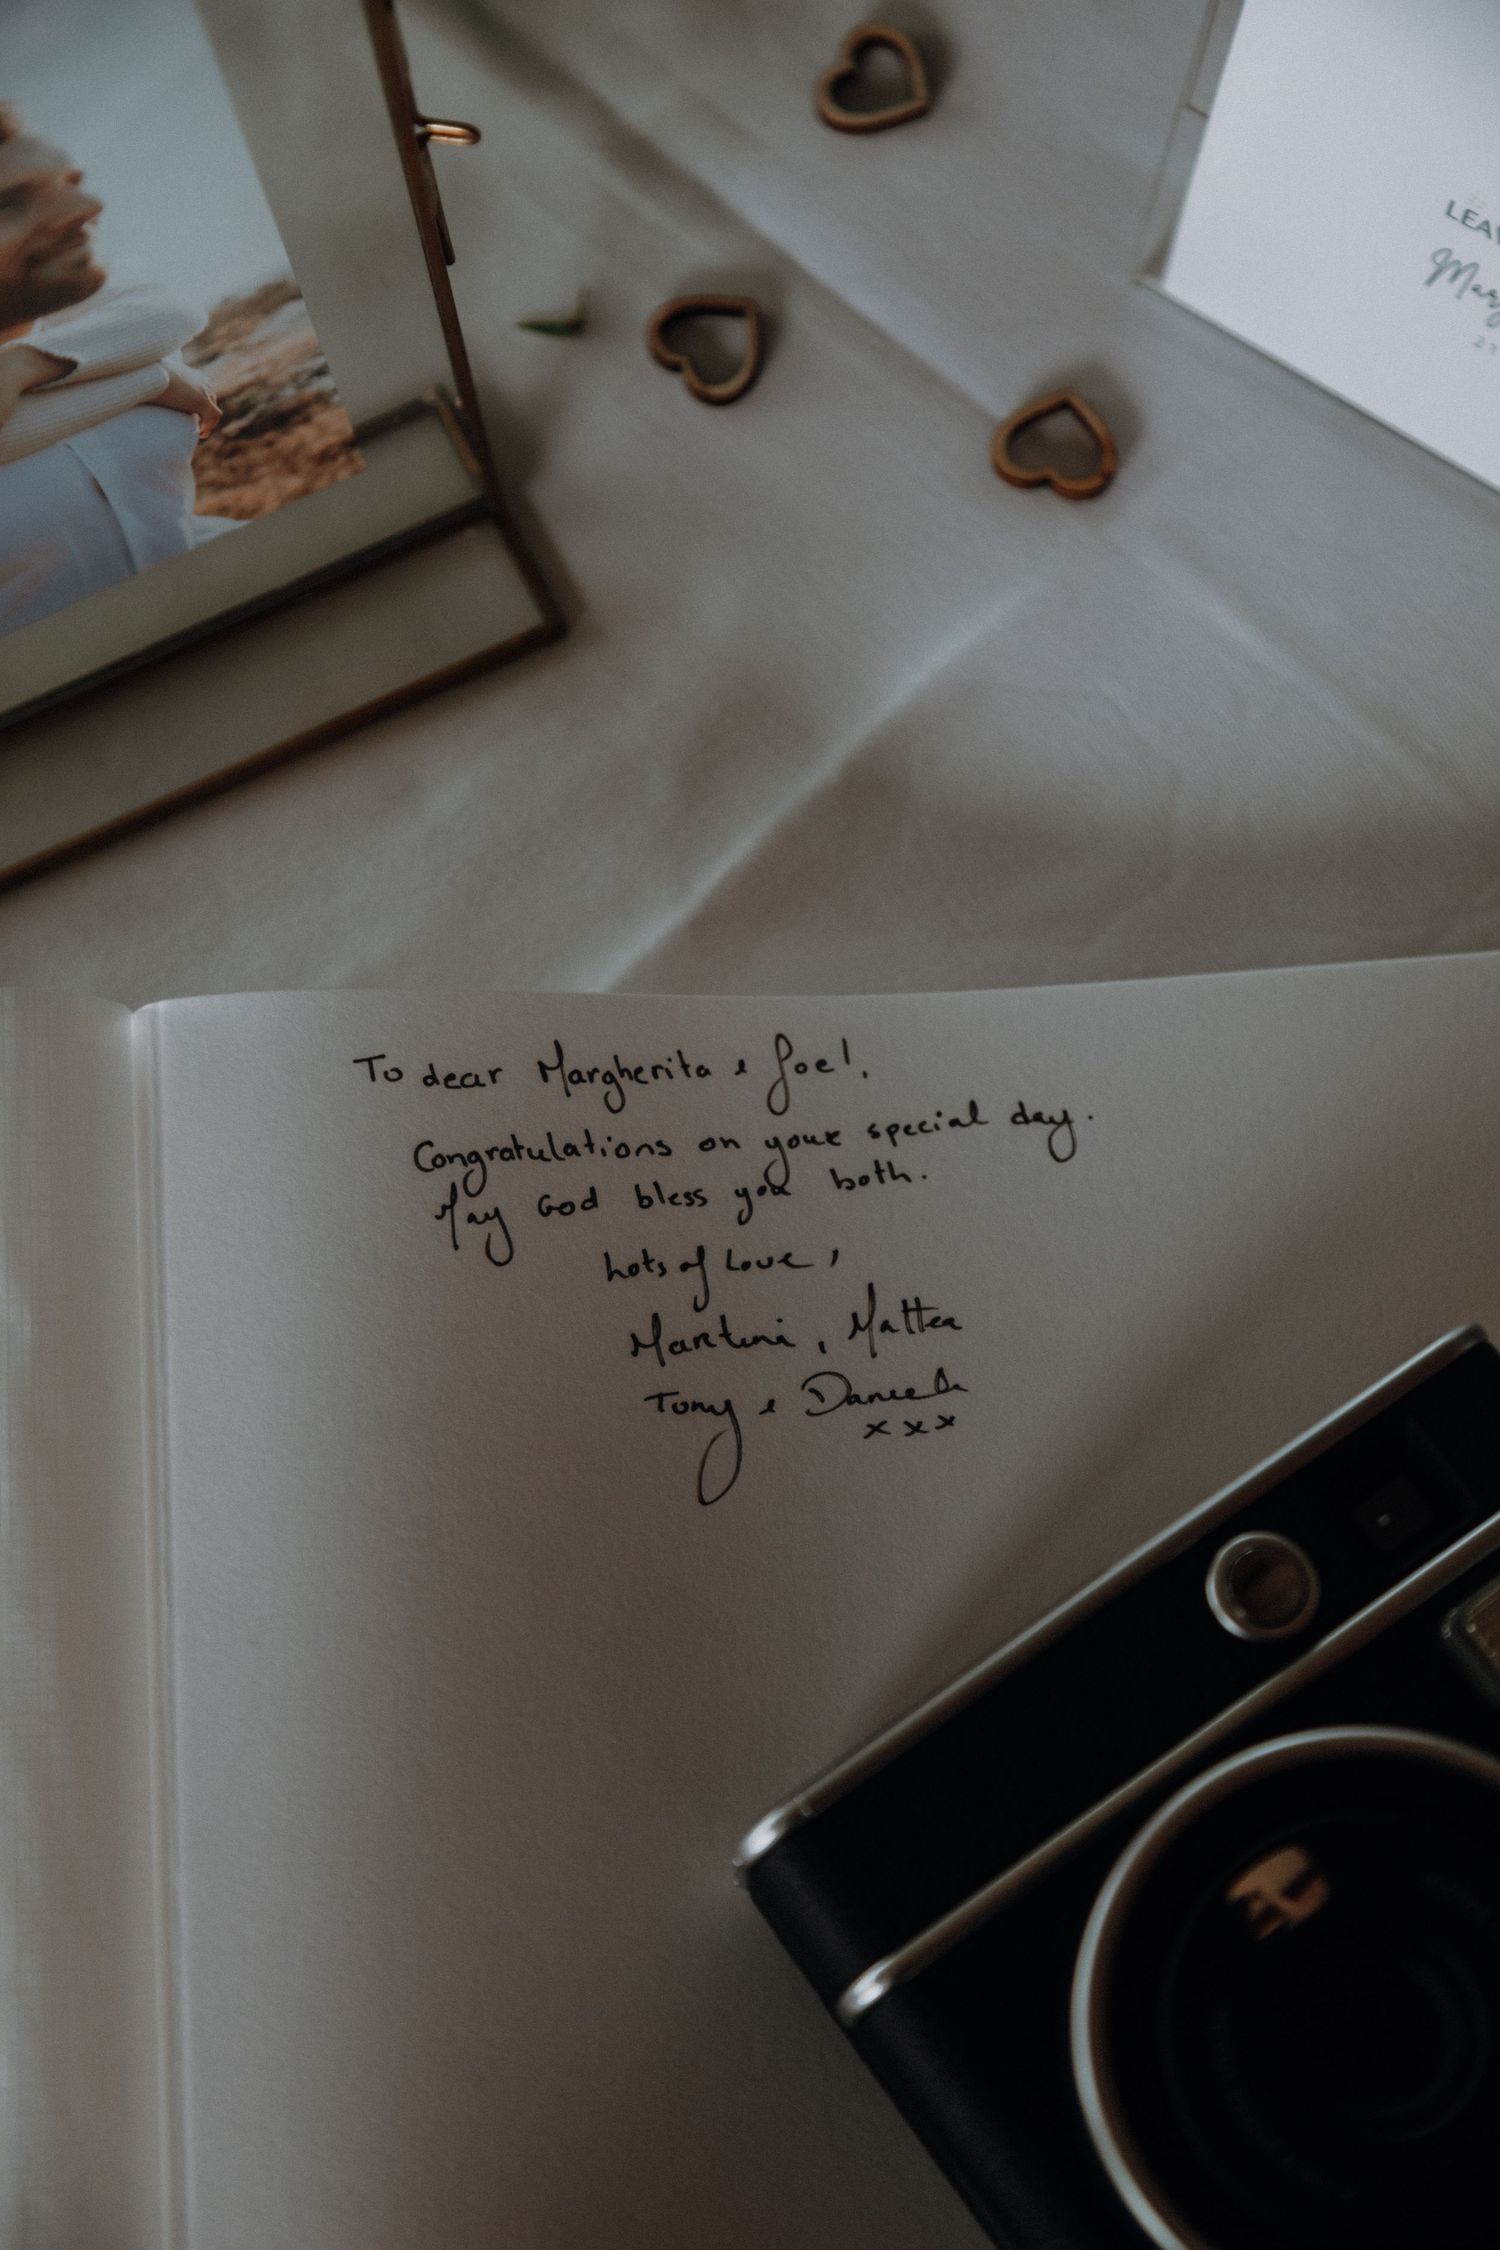 LEAV
Mar
To dear Margherita e Joe!,
Congratulations on your special day.
May God bless you both.
Lots of Love,
Martina, Mattea
Tony e Daniela
xxx